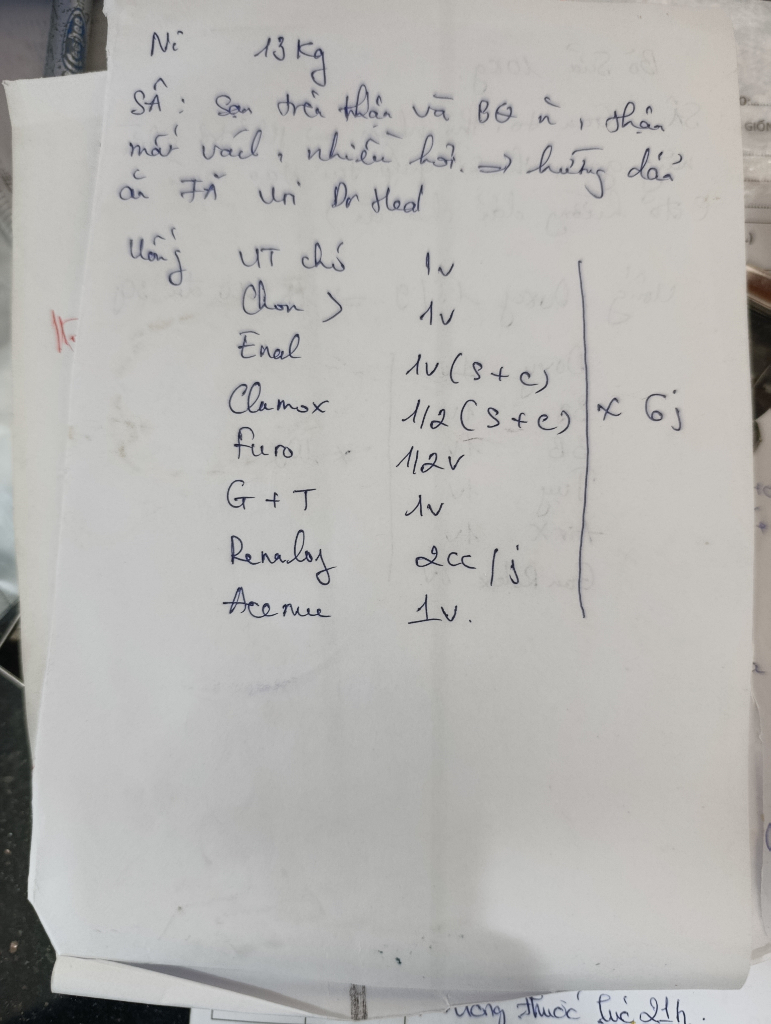 Ni 13 Kg
SÂ: sạn trên thận và BQ ít, thận
mất vách, nhiều hơi. => hướng dẫn
ăn TĂ Uri Dr Heal
Uống UT chó 1v
Chon > 1v
Enal 1v (S + c)
Clamox 1/2 (S + c) x 6j
Furo 1/2v
G + T 1v
Renalof 2cc / j
Acemuc 1v.
thuốc lúc 21h.